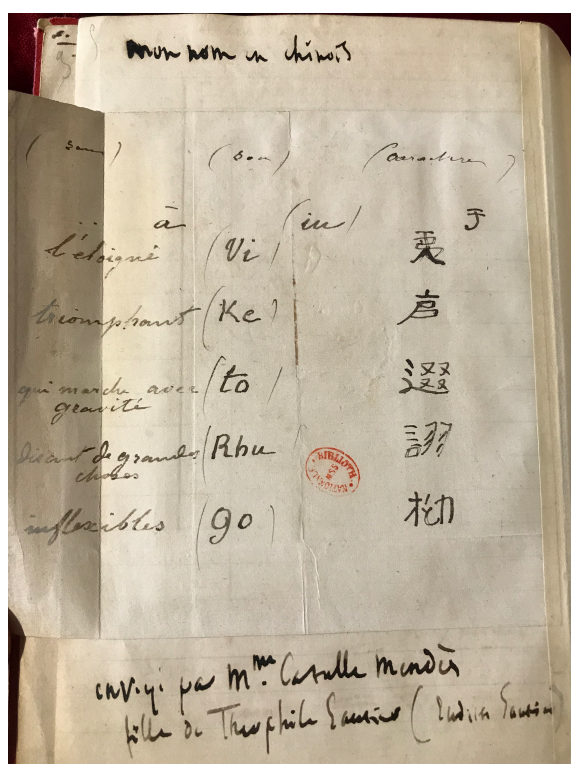 mon nom en chinois
(sens) (son) (caractère)
à (iu) 于
l'éloigné (Vi)
triomphant (Ke)
qui marche avec (to)
gravité
disant de grandes (Rhu) 詡
choses
inflexibles (go)
BIBLIOTH NATIONALE MSS
envoyé par Mme. Catulle Mendès
fille de Theophile Gautier (Judith Gautier)